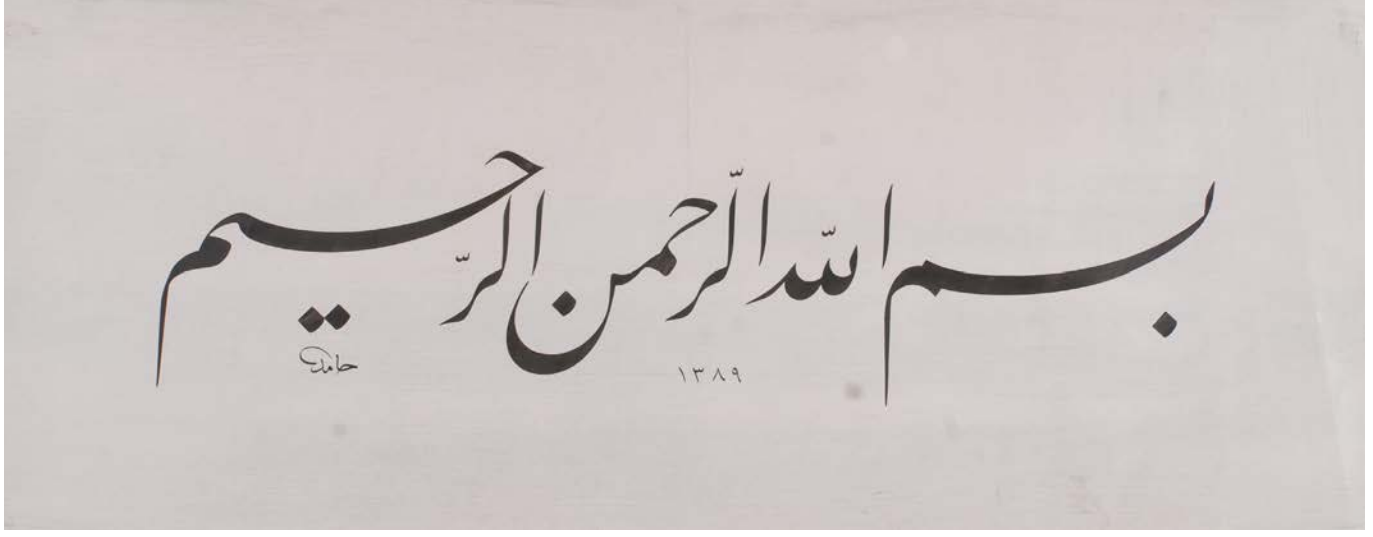 بسم الله الرّحمن الرّحيم
١٣٨٩
حامد